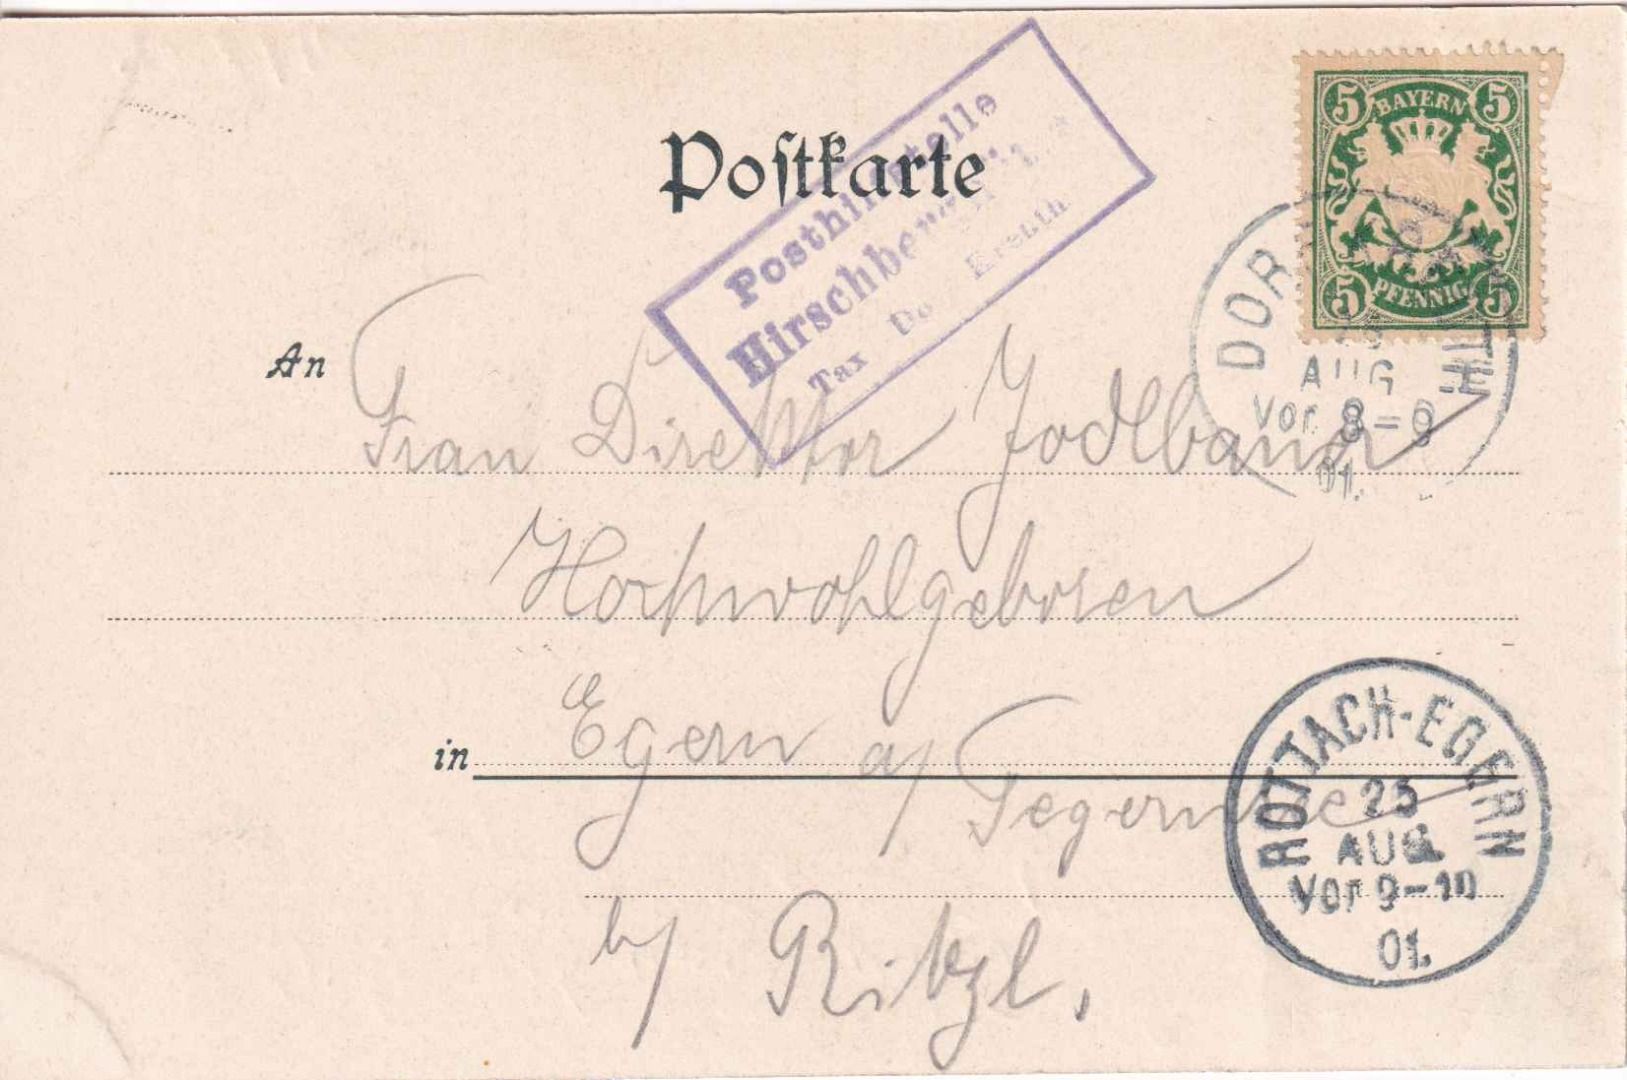 Postkarte
Posthilfstelle
Hirschberg
Tax
BAYERN
5 5
5 5
PFENNIG
AUG
Vor. 8-9
01.
An Frau Direktor Jodlbauer
Hochwohlgeboren
in Egern a/
Tegernsee
b/ Ritzl,
ROTTACH-EGERN
25
AUG.
Vor 9-10
01.